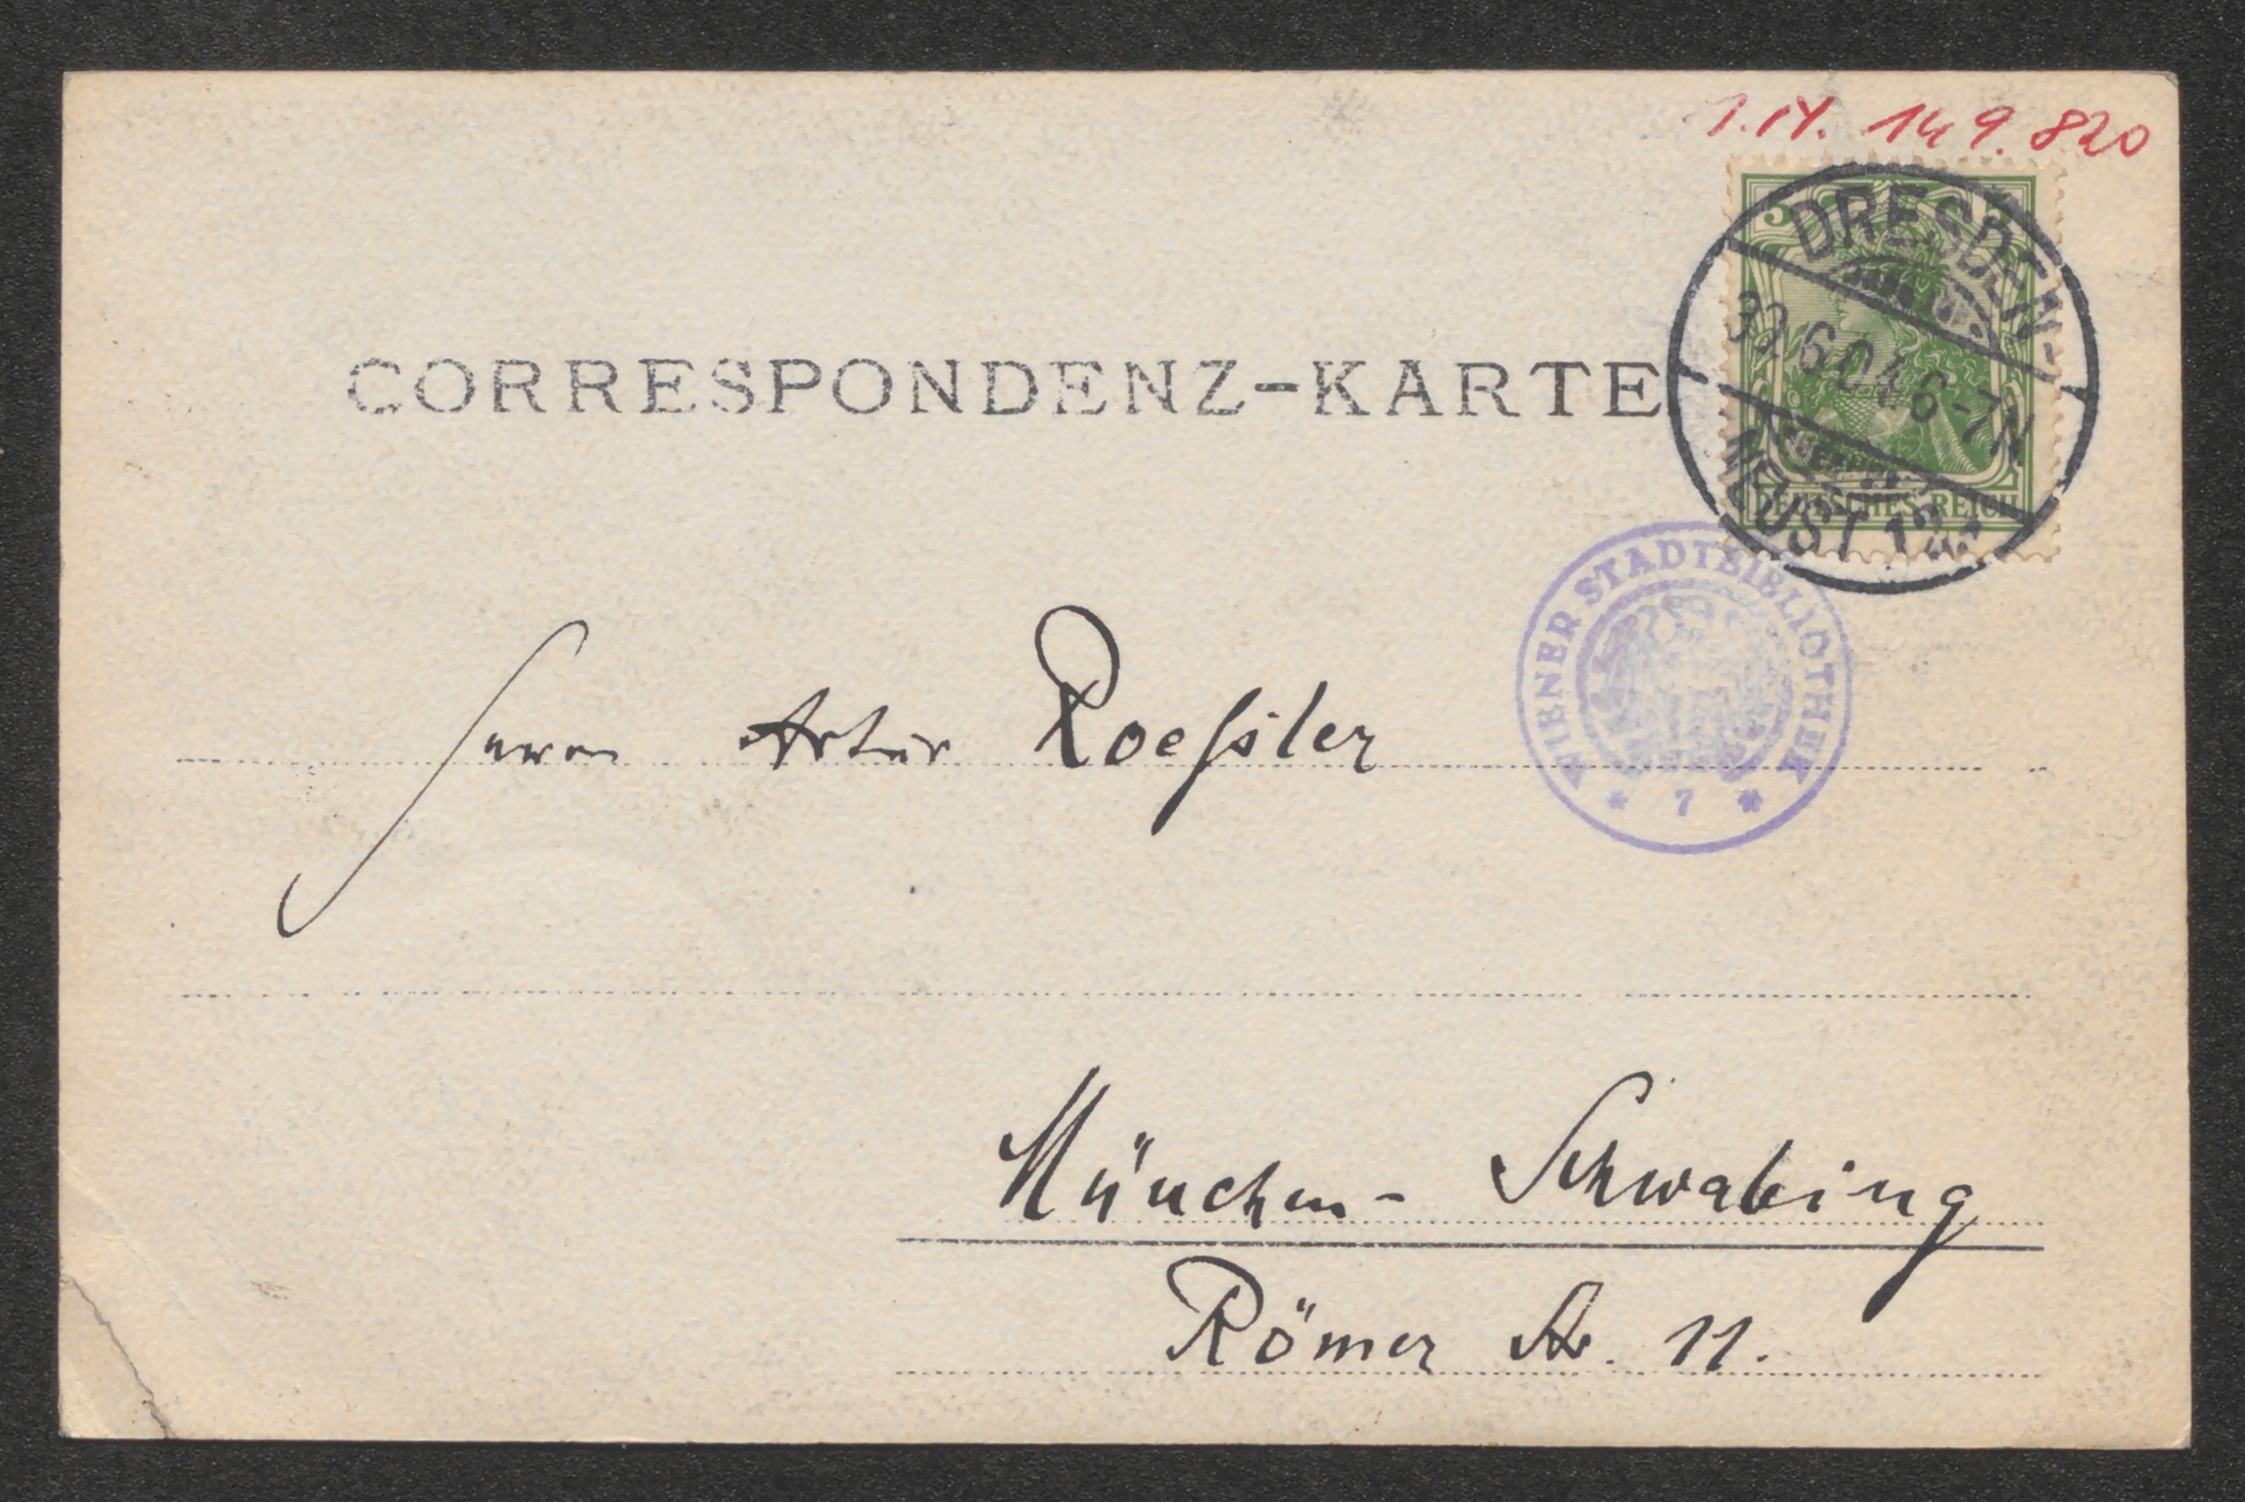 I.N. 149.820
5 5
DRESDEN-
30.6.04.6-7N
NEUST. 12.
DEUTSCHES REICH
CORRESPONDENZ-KARTE
WIENER STADTBIBLIOTHEK
* 7 *
Herrn Artur Roeßler
München-Schwabing
Römer Str. 11.